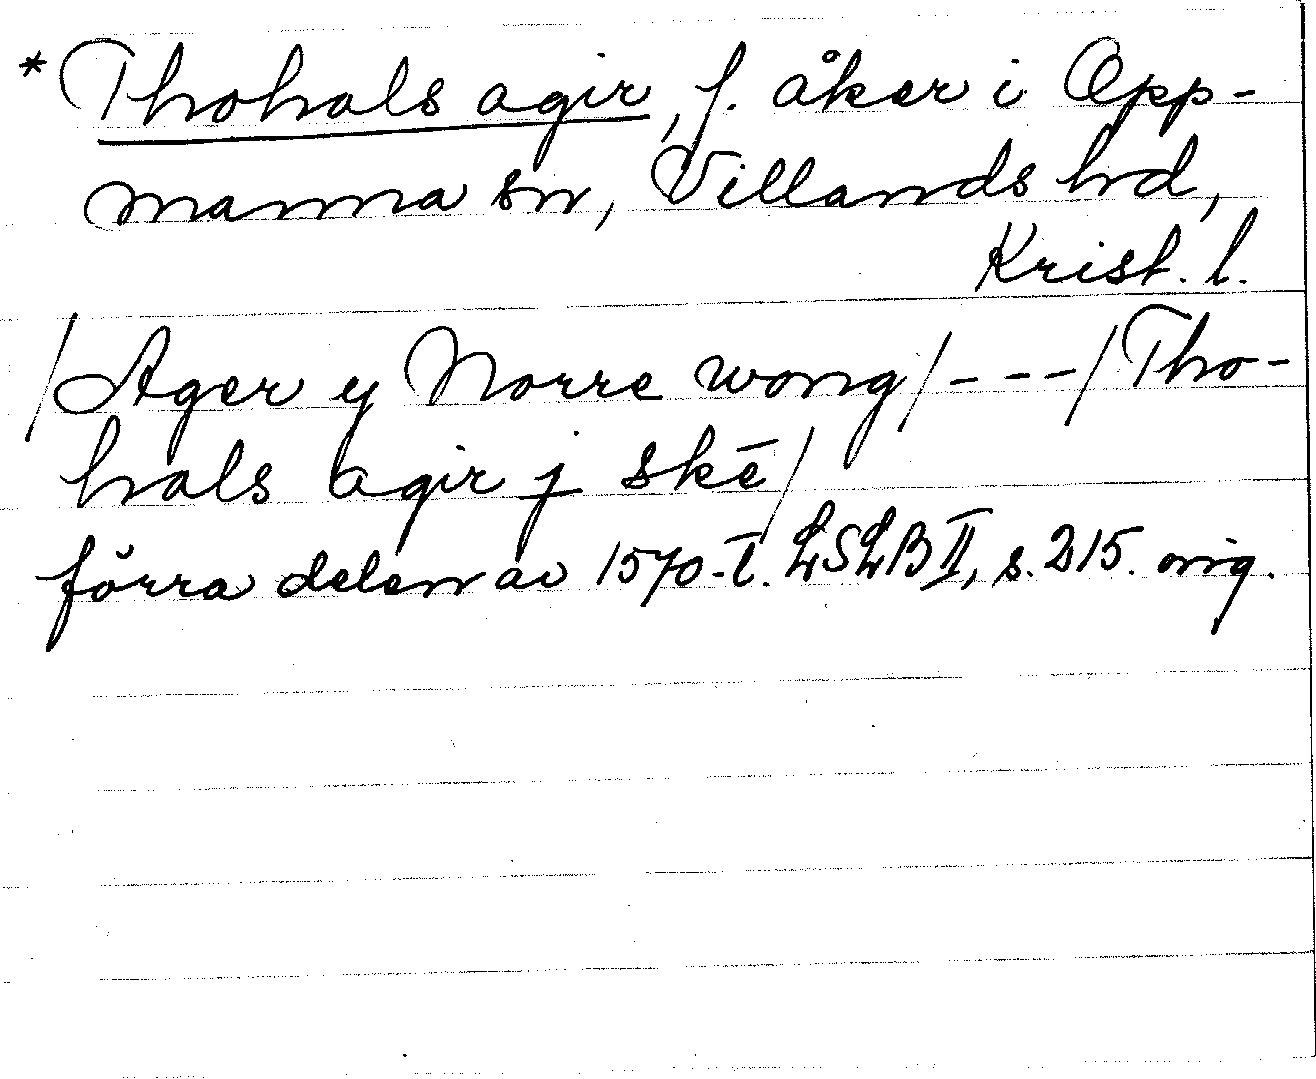 * Thohals agir, f. åker i Opp-
manna sn, Villands hd,
Krist. l.
/Ager y Norre wong/---/Tho-
hals agir j skē/
förra delen av 1570-t. LSLB II, s. 215. orig.